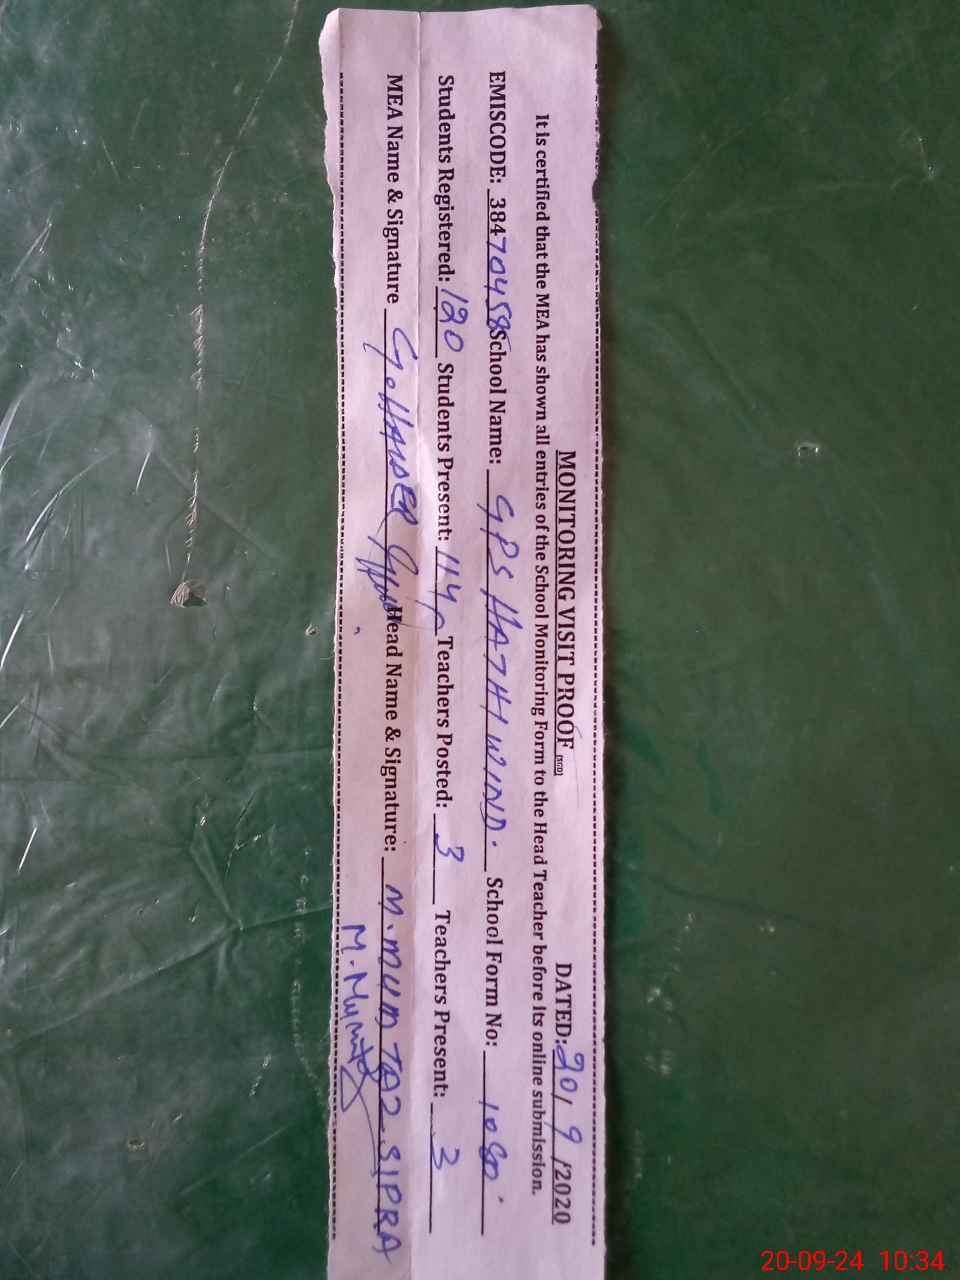 MONITORING VISIT PROOF (SGD) DATED: 20/9/2020
It is certified that the MEA has shown all entries of the School Monitoring Form to the Head Teacher before its online submission.
EMISCODE: 38470458 School Name: GPS HATHIWIND. School Form No: 1080
Students Registered: 120 Students Present: 114 Teachers Posted: 3 Teachers Present: 3
MEA Name & Signature G. HAIDER Head Name & Signature: M. MUMTAZ SIPRA
M. Mumtaz
20-09-24 10:34